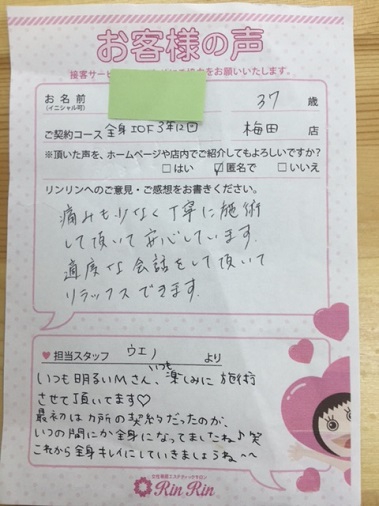 お客様の声
接客サービ をお願いいたします。
お名前 37 歳
(イニシャル可)
ご契約コース 全身IOF3年12回 梅田 店
※頂いた声を、ホームページや店内でご紹介してもよろしいですか?
□はい ☑匿名で □いいえ
リンリンへのご意見・ご感想をお書きください。
痛みも少なく丁寧に施術
して頂いて安心しています。
適度な会話をして頂いて
リラックスできます。
♥担当スタッフ ウエノ より
いつも明るいMさん、いつも楽しみに施術
させて頂いてます♡
最初は カ所の契約だったのが、
いつの間にか全身になってましたね♪笑
これから全身キレイにしていきましょうね〜〜
Rin Rin